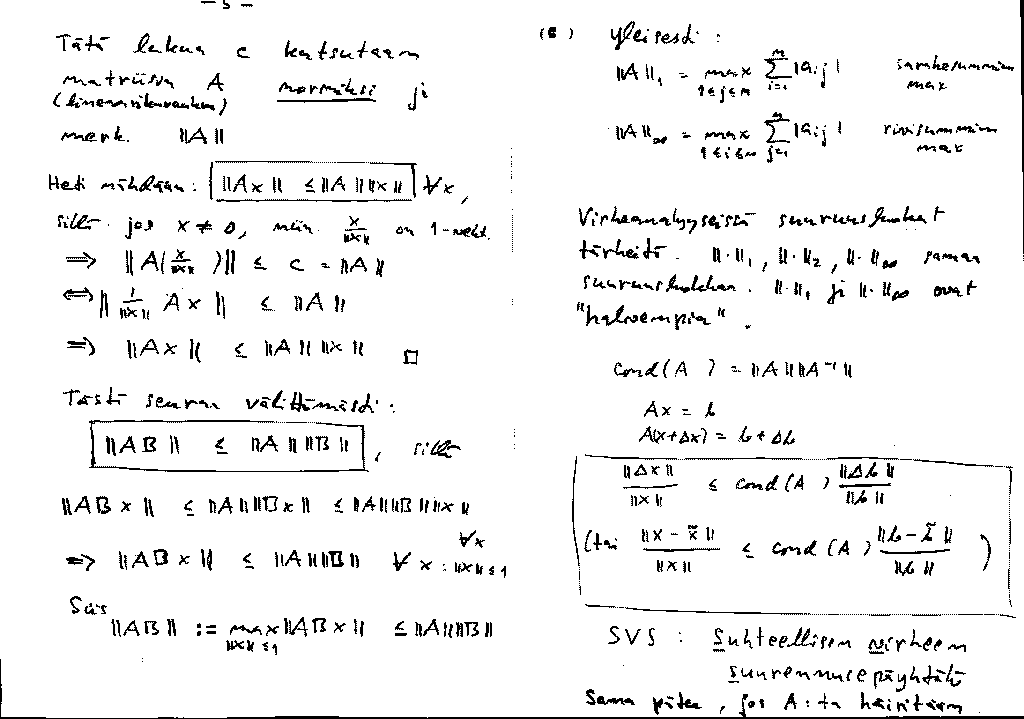 – 5 –
Tätä lukua c kutsutaan
matriisin A normiksi ja
(lineaarikuvauksen)
merk. ||A||
Heti nähdään: ||Ax|| ≤ ||A|| ||x|| ∀x,
sillä jos x ≠ 0, niin x/||x|| on 1-vekt.
⇒ ||A(x/||x||)|| ≤ c = ||A||
⇔ ||1/||x|| Ax|| ≤ ||A||
⇒ ||Ax|| ≤ ||A|| ||x|| □
Tästä seuraa välittömästi:
||AB|| ≤ ||A|| ||B||, sillä
||ABx|| ≤ ||A|| ||Bx|| ≤ ||A|| ||B|| ||x||
∀x
⇒ ||ABx|| ≤ ||A|| ||B|| ∀x : ||x|| ≤ 1
Siis
||AB|| := max ||ABx|| ≤ ||A|| ||B||
||x|| ≤ 1
yleisesti:
||A||₁ = max Σ |aij| sarakesummien
1≤j≤n i=1 max
||A||∞ = max Σ |aij| rivisummien
j=1 max
Virheanalyyseissä suuruusluokat
tärkeitä. ||·||₁, ||·||₂, ||·||∞ samaa
suuruusluokkaa. ||·||₁ ja ||·||∞ ovat
"halvempia".
cond(A) = ||A|| ||A⁻¹||
Ax = b
A(x+Δx) = b + Δb
||Δx||/||x|| ≤ cond(A) ||Δb||/||b||
(tai ||x – x̃||/||x|| ≤ cond(A) ||b – b̃||/||b||)
SVS : Suhteellisen virheen
suurennusepäyhtälö
Sama pätee, jos A:ta häiritään